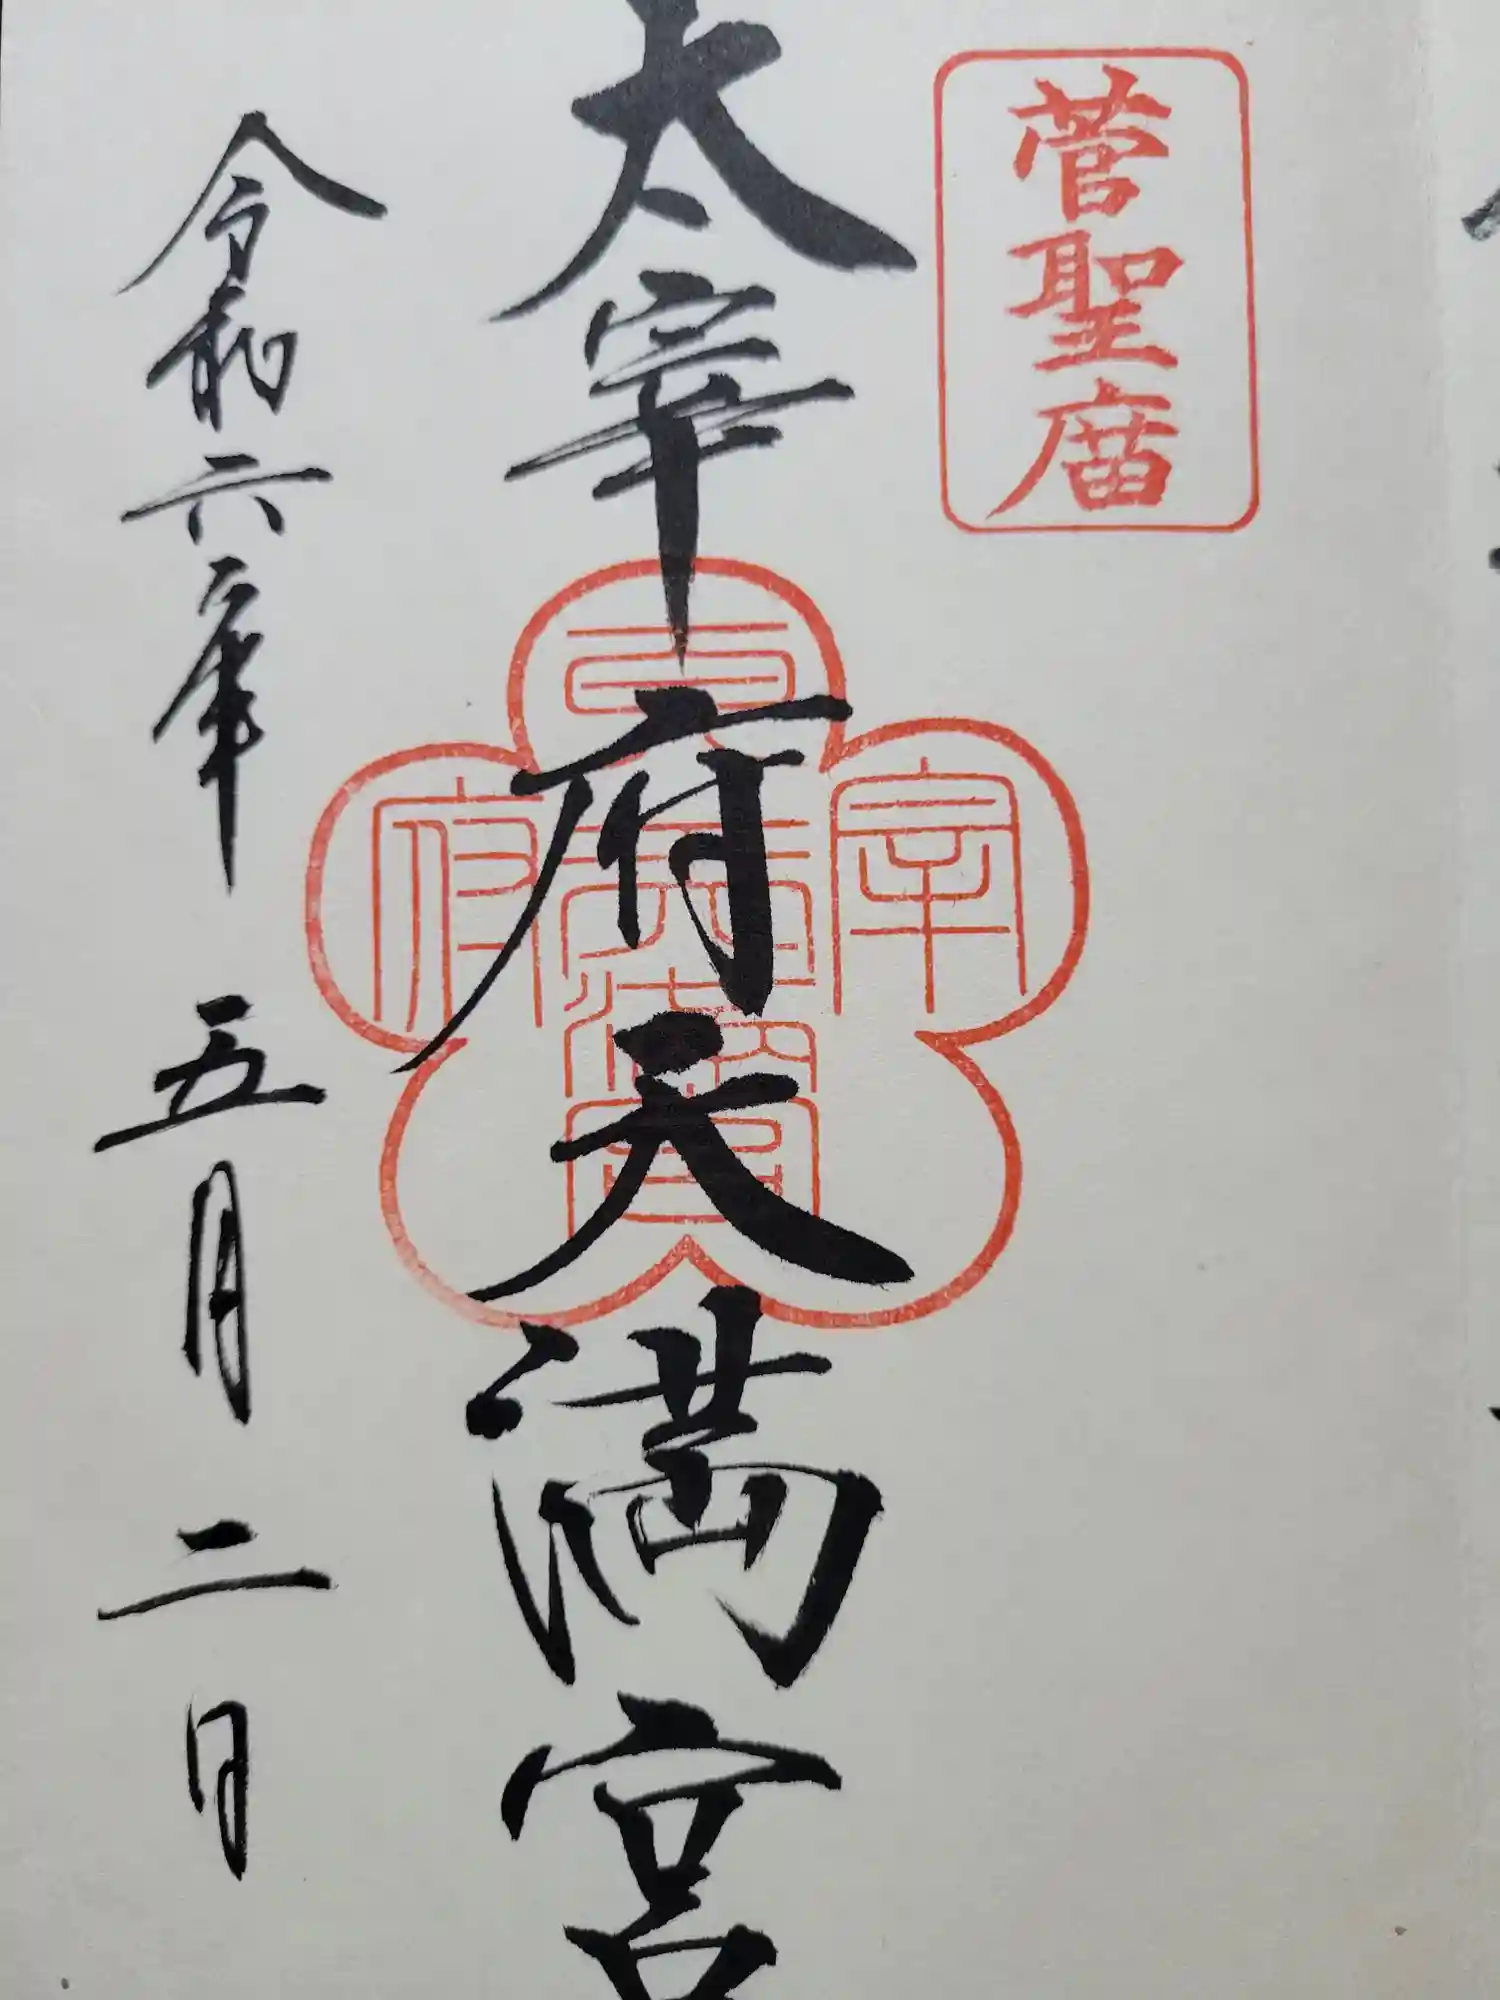 菅聖庿
太宰府天満宮
令和六年五月二日
宰
府
天満宮